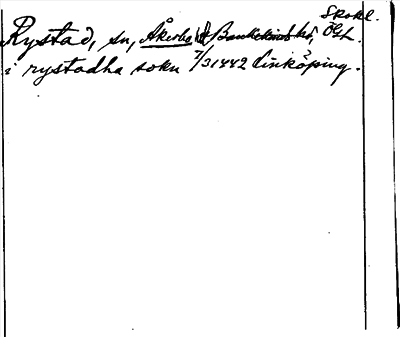 Skokl.
Rystad, sn, Åkerbo Bankekinds hd, Ögtl.
i rystadha sokn 7/3 1442 Linköping.